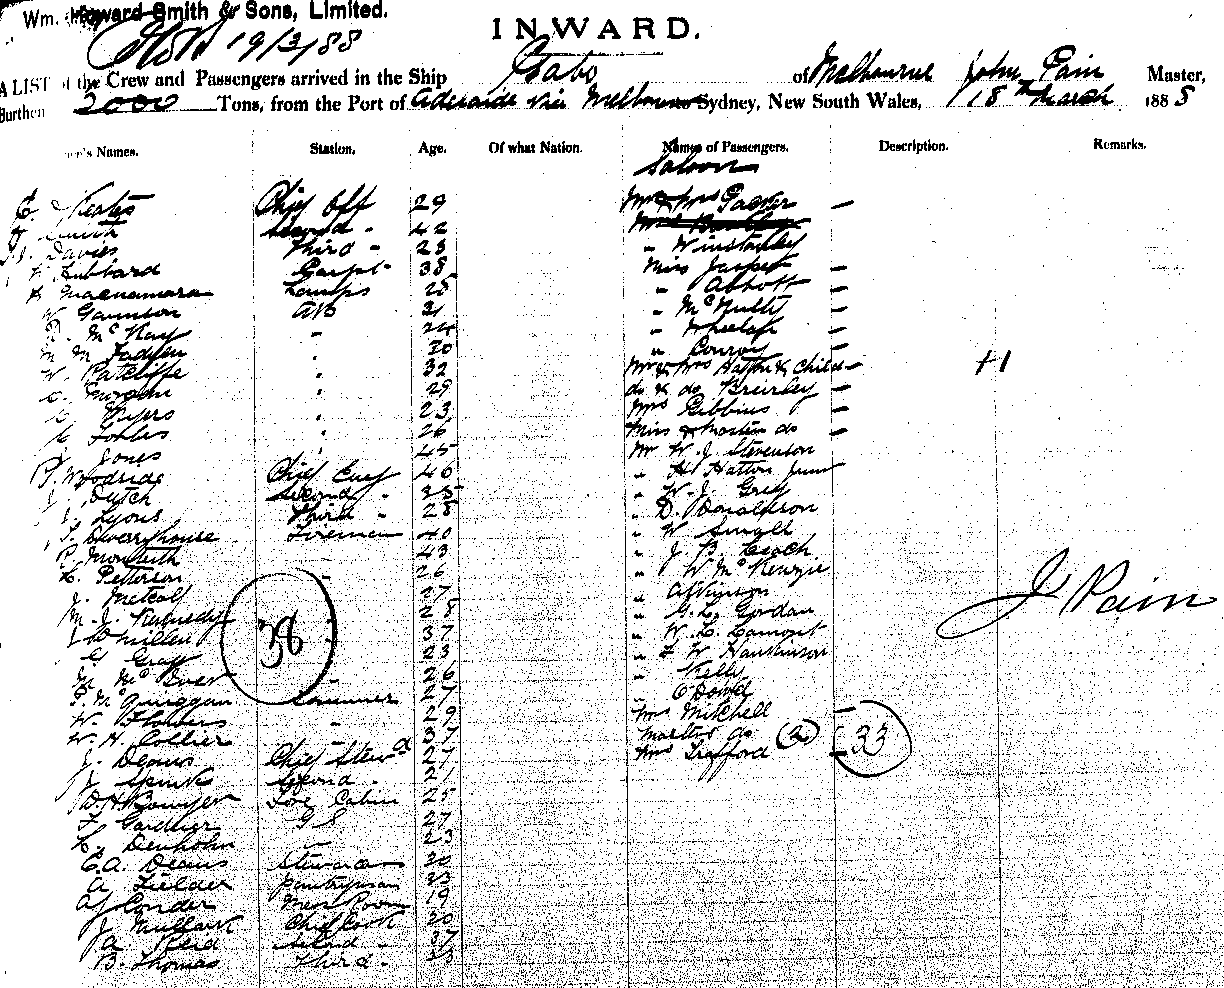 Wm. Howard Smith & Sons, Limited.
INWARD.
19/3/88
A LIST of the Crew and Passengers arrived in the Ship Gabo of Melbourne John Pain Master,
Burthen 2000 Tons, from the Port of Adelaide via Melbourne Sydney, New South Wales, 18th March 1888
Names. Station. Age. Of what Nation. Names of Passengers. Description. Remarks.
Saloon
Keates Chief Off 29 Mr & Mrs —
Smith Second " 42 Mrs
Davies Third " 23 " Winstanley
Hubbard Carpt " 38 Miss —
Macnamara Lamps 28 " Abbott —
W. Gunnson AB 31 " McNulty —
R. McKay " 24 " —
M. McFadyen " 30 " Conroy —
W. Ratcliffe " 32 Mr & Mrs Hatton & Child — +1
" 29 do & do Brierley —
Myers " 23 Mrs Gibbins —
" 26 Miss & Master do —
Jones " 45 Mr W. J. Stevenson
Woodside Chief Eng 46 " H Hatton Junr
J. Dutch Second " 35 " W. J. Grey
J. Lyons Third " 28 " D. Donaldson
Swerryhouse Firemen 40 " W Small
R. Monteith 43 " J. B. Leach
Petterson 26 " W McKenzie
J. Metcalf 27 " Atkinson
M. J. Kennedy 28 " G. L. Gordon
Miller 37 " W. L. Lamont
G Gray 23 " W Hankinson
McEwer " 26 " Kelly
P. McGuiggan 27 " O'Dowd
W. 29 Mrs Mitchell
W. H. Collier " 37 Master do
J. Deans Chief Stewd 27 Mrs Trafford (2) 33
J. Second " 21
D. H. Sawyer Fore Cabin 25
F. Gardner G S 27
Denholm " 23
E. A. Deans Stewardess 30
A Fielder Pantryman 23
Conder Mess Room 19
J Chief Cook 30
Reid Second " 37
B. Thomas Third "
38
J Pain